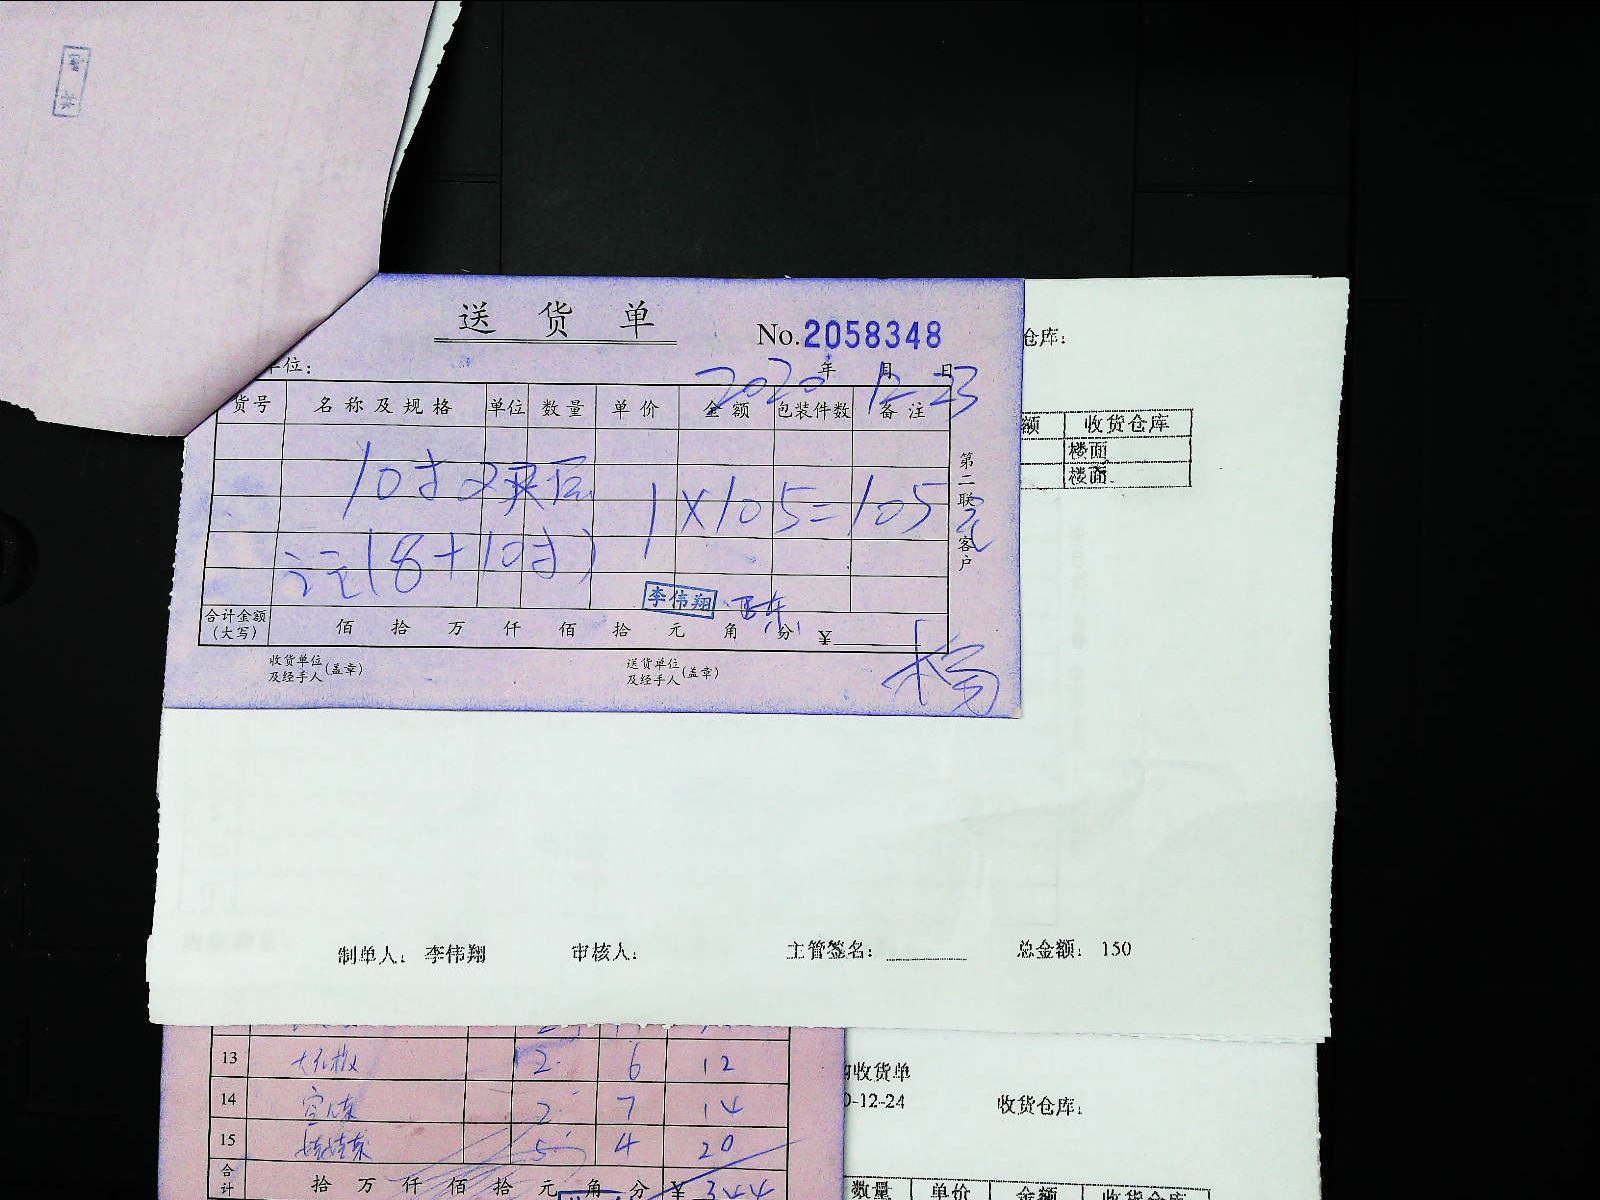 送 货 单
No.2058348
仓库：
位：
年 月 日
2020 12 23
货号 名称及规格 单位 数量 单价 金额 包装件数 备注
额 收货仓库
楼面
楼面
10寸
1×105=105元
(8+10寸)
第二联 客户
李伟翔
合计金额（大写） 佰 拾 万 仟 佰 拾 元 角 分 ¥
收货单位及经手人（盖章） 送货单位及经手人（盖章）
制单人： 李伟翔 审核人： 主管签名： 总金额： 150
13 2 6 12
收货单
14 2 7 14
0-12-24 收货仓库：
15 娃娃菜 5 4 20
合计 拾 万 仟 佰 拾 元 角 分 ¥ 344
数量 单价 金额 收货仓库